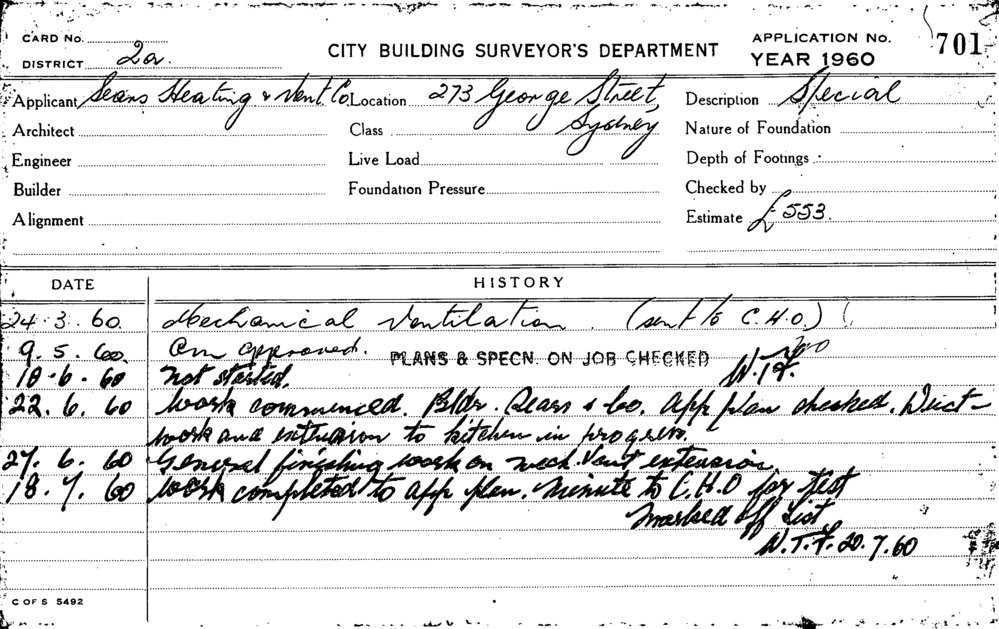 CARD No.
DISTRICT 2a.
CITY BUILDING SURVEYOR'S DEPARTMENT
APPLICATION No. 701
YEAR 1960
Applicant Sears Heating & Vent Co Location 273 George Street, Sydney Description Special
Architect Class Nature of Foundation
Engineer Live Load Depth of Footings
Builder Foundation Pressure Checked by
Alignment Estimate £553.
DATE HISTORY
24.3.60. Mechanical Ventilation. (sent to C.H.O.)
9.5.60. Cm approved.
PLANS & SPECN. ON JOB CHECKED
18.6.60 Not started. W.T.F.
22.6.60 Work commenced. Bldr. Sears & Co. App plan checked. Duct-
work and extension to kitchen in progress.
27.6.60 General finishing work on mech. vent extension.
18.7.60 Work completed to app plan. Minute to C.H.O for test
Marked off List
W.T.F. 20.7.60
C OF S 5492